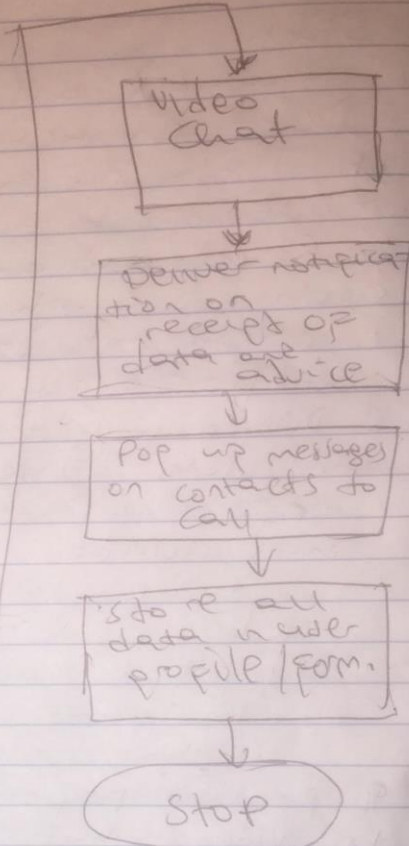 Video
Chat
Deliver notifica
tion on
receipt of
data and
advice
Pop up messages
on contacts to
Call
Store all
data in user
profile/form.
Stop